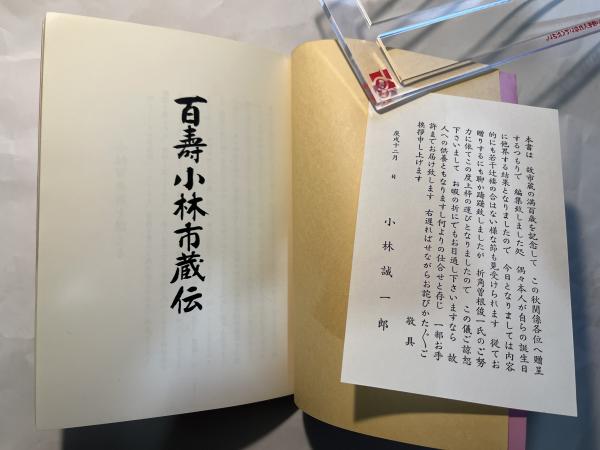 百壽小林市蔵伝
本書は 故市蔵の満百歳を記念して この秋関係各位へ贈呈
するつもりで 編集致しました処 偶々本人が自らの誕生日
に他界する結果となりましたので 今日となりましては内容
的にも若干辻褄の合はない様な節も見受けられます 従てお
贈りするにも聊か躊躇致しましたが 折角曽根俊一氏のご努
力に依てこの度上梓の運びとなりましたので この儀ご諒恕
下さいまして お暇の折にでもお目通し下さいますなら 故
人への供養ともなりますし何よりの仕合せと存じ 一部お手
許までお届け致します 右遅ればせながらお詫びかた〲ご
挨拶申し上げます
敬具
庚戌十二月 日
小林誠一郎